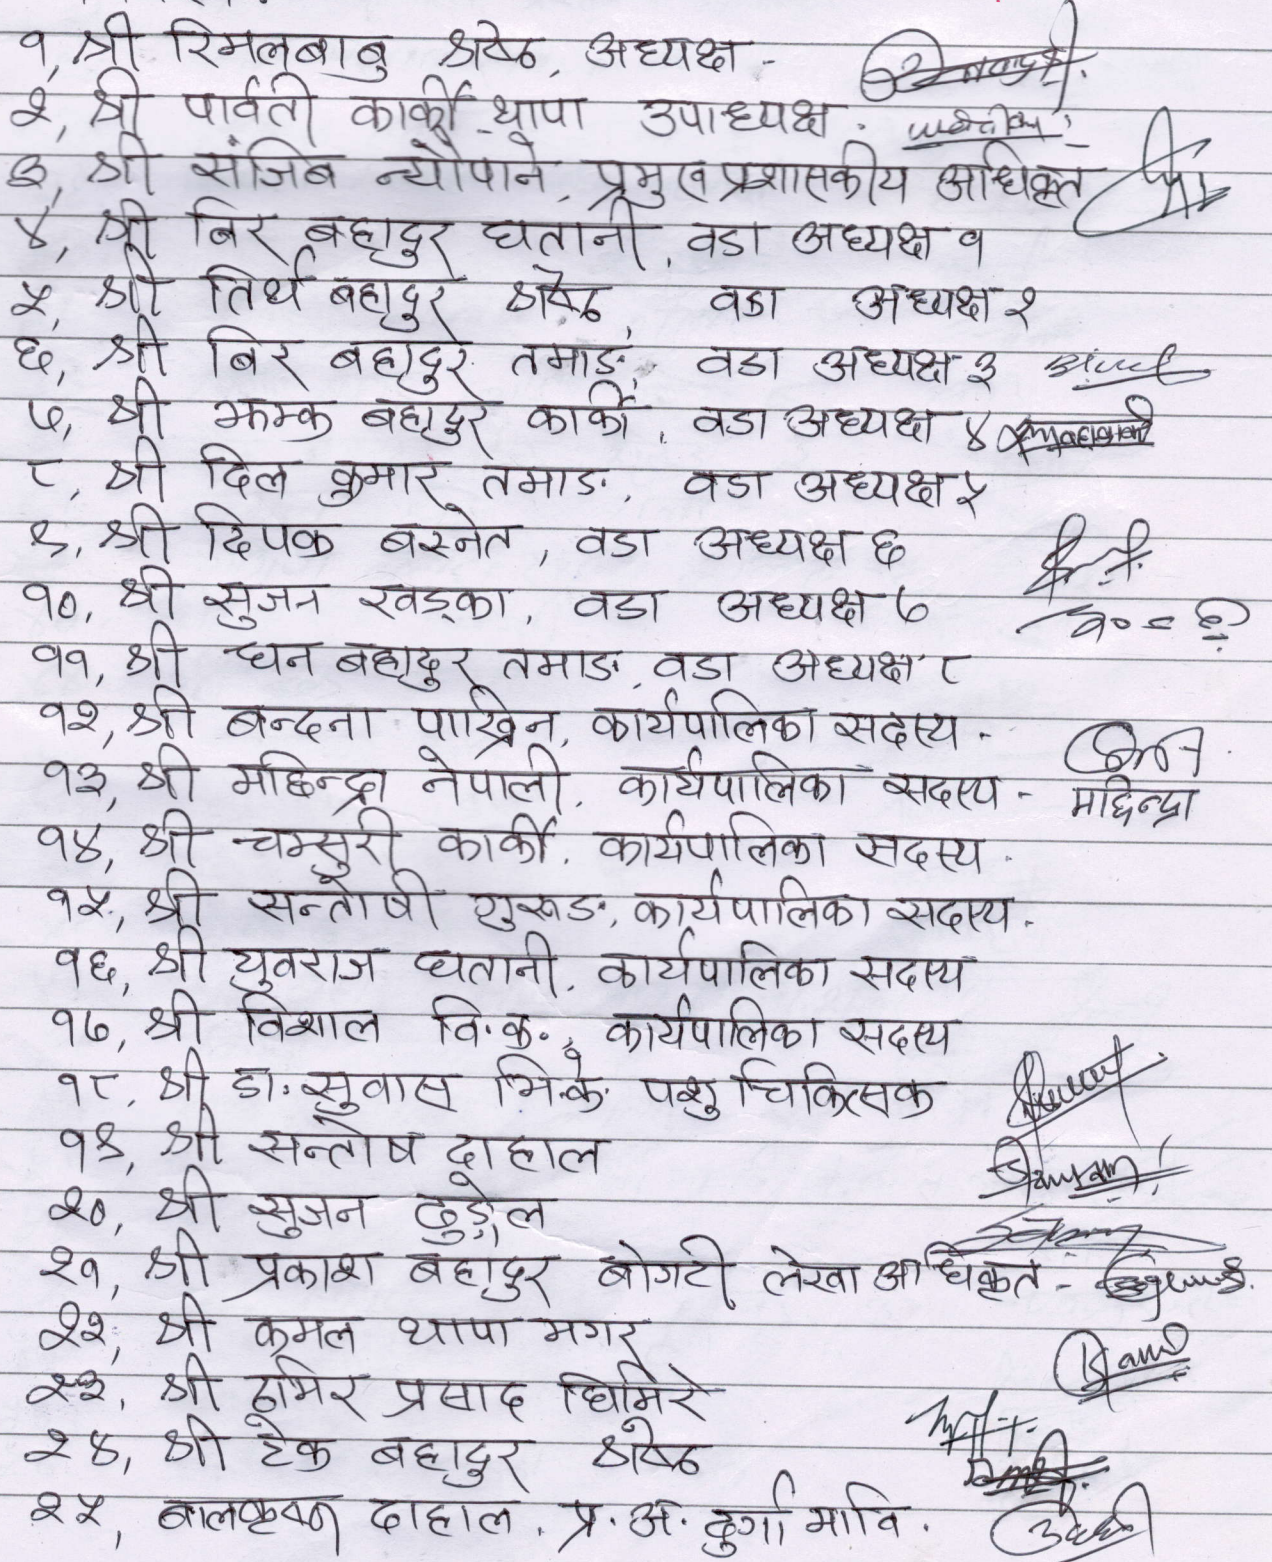 १, श्री रिमलबाबु श्रेष्ठ, अध्यक्ष -
२, श्री पार्वती कार्की थापा उपाध्यक्ष .
३, श्री संजिब न्यौपाने, प्रमुख प्रशासकीय अधिकृत
४, श्री बिर बहादुर घतानी, वडा अध्यक्ष १
५, श्री तिर्थ बहादुर श्रेष्ठ, वडा अध्यक्ष २
६, श्री बिर बहादुर तमाङ, वडा अध्यक्ष ३
७, श्री झम्क बहादुर कार्की, वडा अध्यक्ष ४
८, श्री दिल कुमार तमाङ, वडा अध्यक्ष ५
९, श्री दिपक बस्नेत, वडा अध्यक्ष ६
१०, श्री सुजन खड्का, वडा अध्यक्ष ७
११, श्री धन बहादुर तमाङ, वडा अध्यक्ष ८
१२, श्री बन्दना पाख्रिन, कार्यपालिका सदस्य -
१३, श्री मछिन्द्रा नेपाली, कार्यपालिका सदस्य - मछिन्द्रा
१४, श्री चम्सुरी कार्की, कार्यपालिका सदस्य .
१५, श्री सन्तोषी गुरूङ, कार्यपालिका सदस्य .
१६, श्री युवराज घतानी, कार्यपालिका सदस्य
१७, श्री विशाल वि.क., कार्यपालिका सदस्य
१८, श्री डा. सुवास सि.के. पशु चिकित्सक
१९, श्री सन्तोष दाहाल
२०, श्री सुजन ढुङ्गेल
२१, श्री प्रकाश बहादुर बोगटी लेखा अधिकृत -
२२, श्री कमल थापा मगर
२३, श्री प्रसाद घिमिरे
२४, श्री टेक बहादुर श्रेष्ठ
२५, बालकृष्ण दाहाल, प्र. अ. दुर्गा मावि .